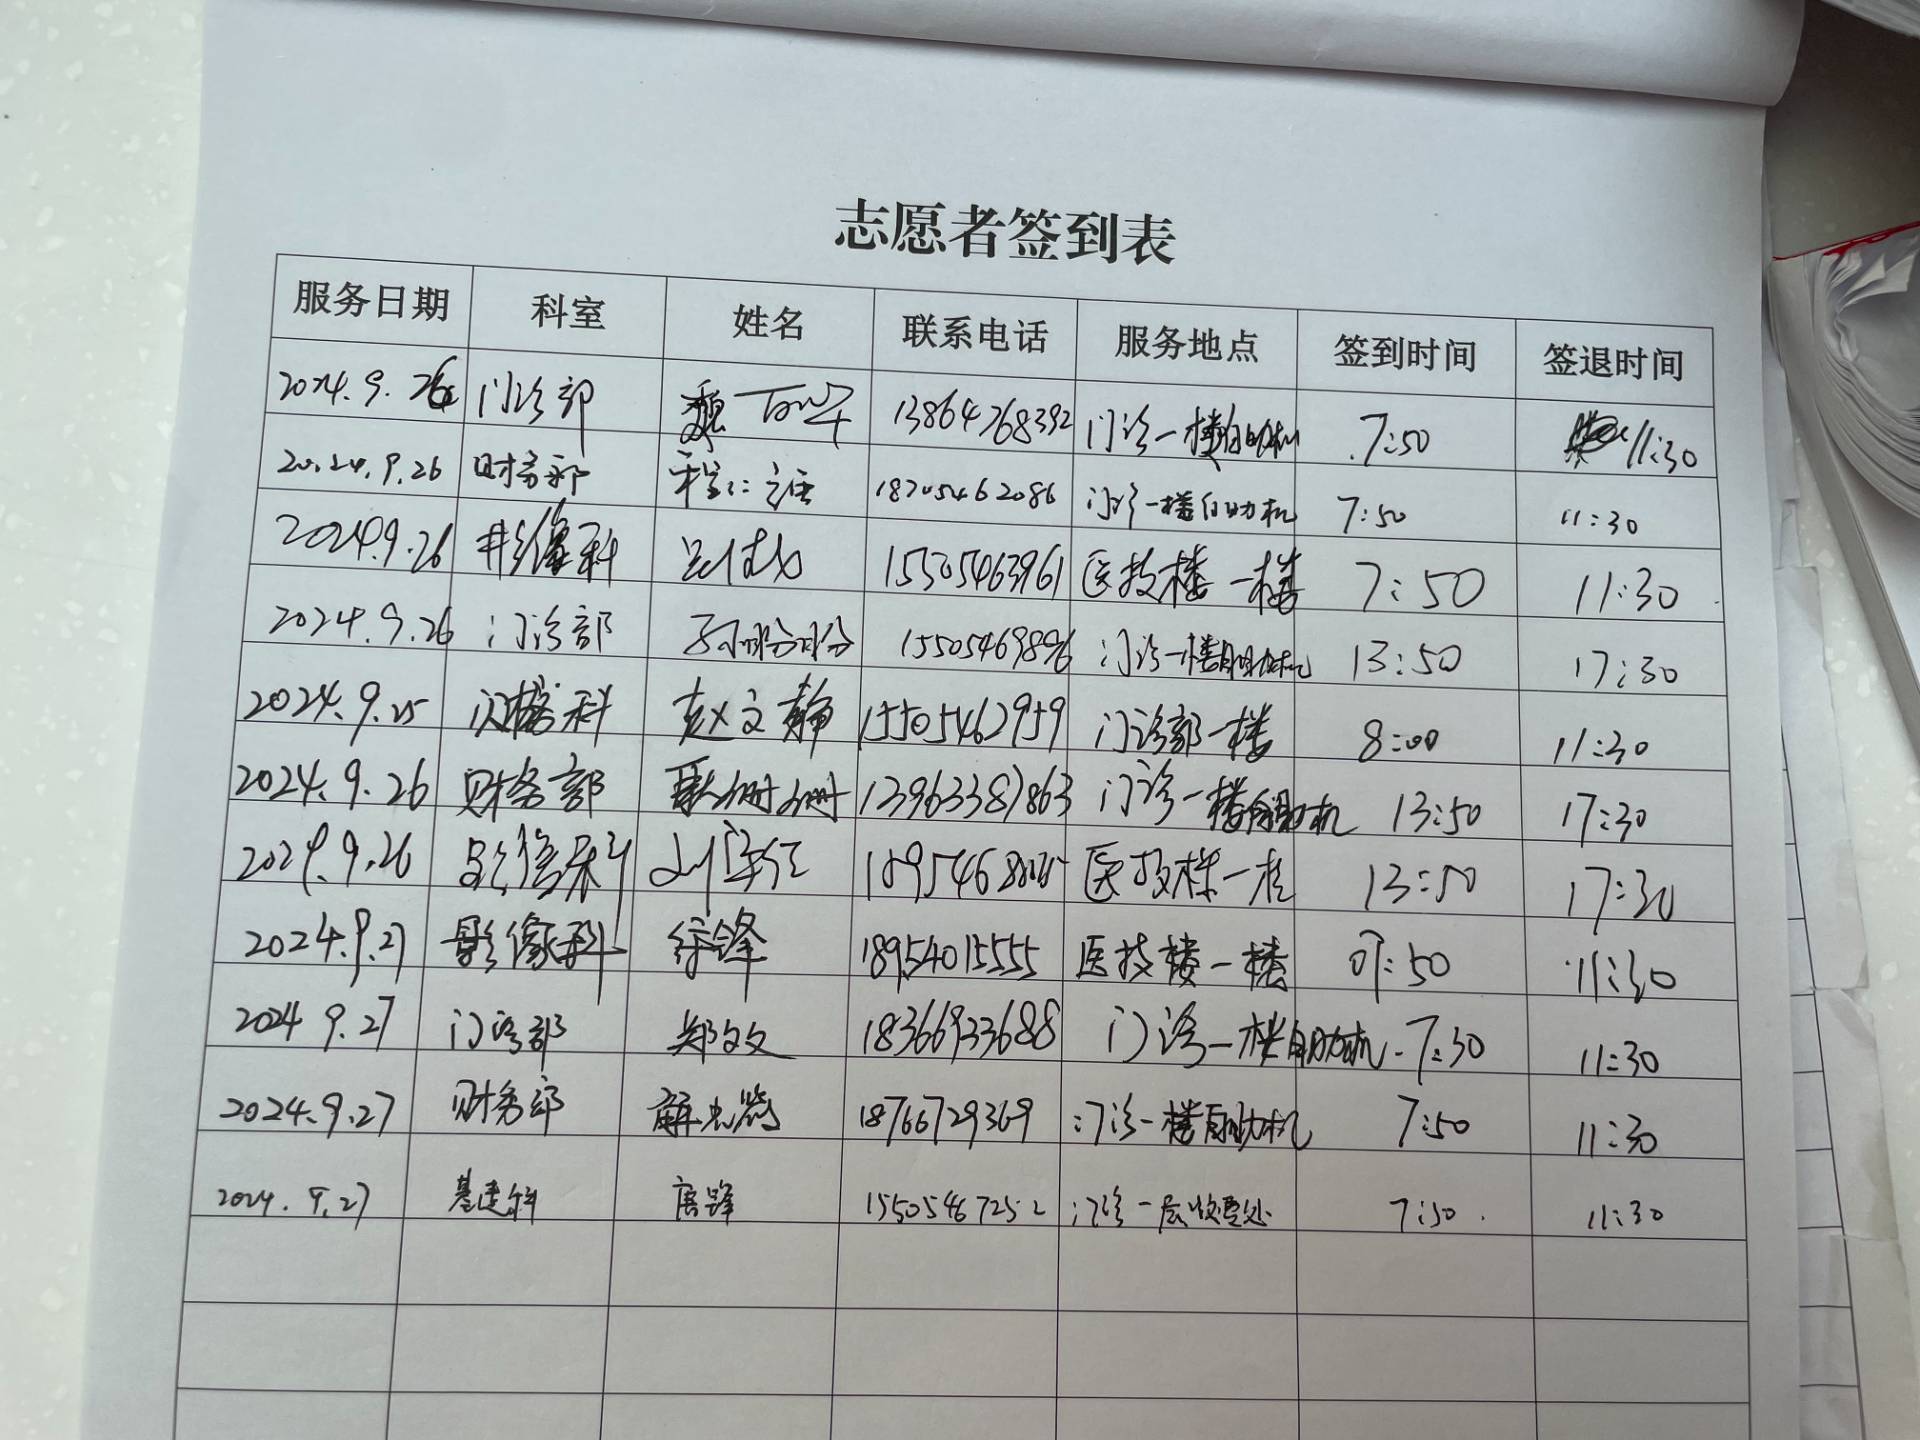 志愿者签到表
服务日期 科室 姓名 联系电话 服务地点 签到时间 签退时间
2024.9.26 门诊部 魏 13864768392 门诊一楼自助机 7:50 11:30
2024.9.26 财务部 18705462086 门诊一楼自助机 7:50 11:30
2024.9.26 影像科 15505463961 医技楼一楼 7:50 11:30
2024.9.26 门诊部 孙盼盼 15505469896 门诊一楼自助机 13:50 17:30
2024.9.25 科 赵文静 15505462959 门诊部一楼 8:00 11:30
2024.9.26 财务部 姗姗 13963387863 门诊一楼自助机 13:50 17:30
2024.9.26 影像科 刘 医技楼一楼 13:50 17:30
2024.9.27 影像科 徐锋 18954015555 医技楼一楼 07:50 11:30
2024 9.27 门诊部 郑文文 18366933688 门诊一楼自助机 7:30 11:30
2024.9.27 财务部 解志鹏 18766729369 门诊一楼自助机 7:50 11:30
2024.9.27 基建科 唐锋 15505467252 门诊一层收费处 7:50 11:30